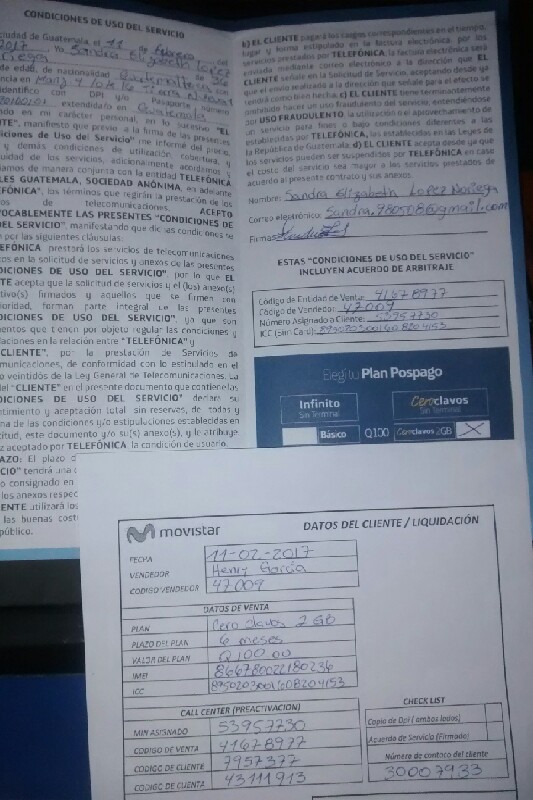 CONDICIONES DE USO DEL SERVICIO
ciudad de Guatemala, el 11 de febrero del
2017, Yo Sandra Elizabeth López
Noriega
de edad, de nacionalidad Guatemalteca
extendido en Guatemala
manifiesto que previo a la firma de las presentes
demás condiciones de utilización, cobertura,
LES GUATEMALA, SOCIEDAD ANÓNIMA, en adelante
FÓNICA", los términos que regirán la prestación de los
os de telecomunicaciones. ACEPTO
VOCABLEMENTE LAS PRESENTES "CONDICIONES DE
DEL SERVICIO", manifestando que dichas condiciones se
n por las siguientes cláusulas:
EFÓNICA prestará los servicios de telecomunicaciones
tos en la solicitud de servicios y anexos de las presentes
DICIONES DE USO DEL SERVICIO", por lo que EL
NTE acepta que la solicitud de servicios y el (los) anexo(s)
tivo(s) firmados y aquellos que se firmen con
rioridad, forman parte integral de las presentes
DICIONES DE USO DEL SERVICIO", ya que son
mentos que tienen por objeto regular las condiciones y
laciones en la relación entre "TELEFÓNICA" y
CLIENTE", por la prestación de Servicios de
comunicaciones, de conformidad con lo estipulado en el
o veintidós de la Ley General de Telecomunicaciones. La
del "CLIENTE" en el presente documento que contiene las
DICIONES DE USO DEL SERVICIO" declara su
timiento y aceptación total sin reservas, de todas y
na de las condiciones y/o estipulaciones establecidas en
citud, este documento y/o su(s) anexo(s), y le atribuye
z aceptado por TELEFÓNICA, la condición de usuario.
AZO: El plazo
CIO" tendrá una
o consignado en
los anexos respec
ENTE utilizará los
las buenas cost
público.
b) EL CLIENTE pagará los cargos correspondientes en el tiempo,
lugar y forma estipulado en la factura electrónica, por los
servicios prestados por TELEFÓNICA; la factura electrónica será
enviada mediante correo electrónico a la dirección que EL
CLIENTE señale en la Solicitud de Servicio, aceptando desde ya
que el envío realizado a la dirección que señala para el efecto se
tendrá como bien hecha. c) EL CLIENTE tiene terminantemente
prohibido hacer un uso fraudulento del servicio, entendiéndose
por USO FRAUDULENTO la utilización o el aprovechamiento de
un servicio para fines o bajo condiciones diferentes a las
establecidas por TELEFÓNICA, las establecidas en las Leyes de
la República de Guatemala. d) EL CLIENTE acepta desde ya que
los servicios pueden ser suspendidos por TELEFÓNICA en caso
el costo del servicio sea mayor a los servicios prestados de
acuerdo al presente contrato y sus anexos.
Nombre: Sandra Elizabeth López Noriega
Correo electrónico: Sandra.980508@gmail.com
Firma:
ESTAS "CONDICIONES DE USO DEL SERVICIO"
INCLUYEN ACUERDO DE ARBITRAJE
Código de Entidad de Venta: 41678977
Código de Vendedor: 47009
Número Asignado a Cliente: 53957730
ICC (Sim Card): 8950203001608204153
Elegí tu Plan Pospago
Infinito
Sin Terminal
Ceroclavos
Sin Terminal
Básico Q100 Ceroclavos 2GB X
movistar DATOS DEL CLIENTE / LIQUIDACIÓN
FECHA 11-02-2017
VENDEDOR Henry García
CODIGO VENDEDOR 47009
DATOS DE VENTA
PLAN Cero clavos 2 GB
PLAZO DEL PLAN 6 meses
VALOR DEL PLAN Q100.00
IMEI 866780022180236
ICC 8950203001608204153
CALL CENTER (PREACTIVACION)
MIN ASIGNADO 53957730
CODIGO DE VENTA 41678977
CODIGO DE CLIENTE 7957377
CODIGO DE CUENTA 43111913
CHECK LIST
Copia de Dpi (ambos lados)
Acuerdo de Servicio (Firmado)
Número de contaco del cliente
30007933